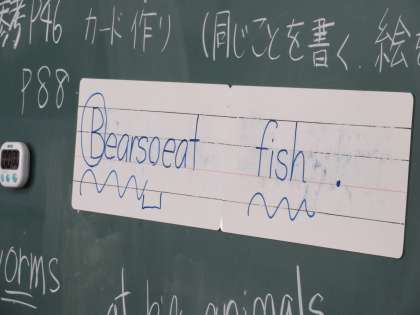 P46 カード作り (同じことを書く. 絵を
P88
Bearsoeat fish .
orms
at big animals